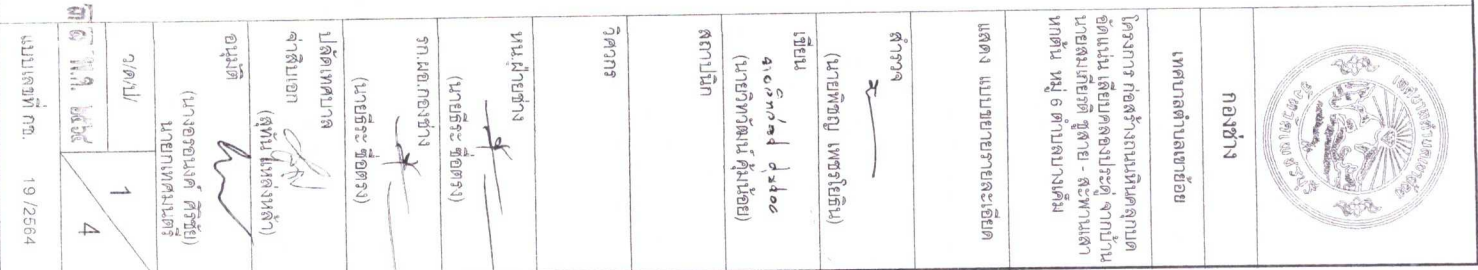 กองช่าง
เทศบาลตำบลเขาย้อย
โครงการ ก่อสร้างถนนหินคลุกบด
อัดแน่น เลียบคลองประดู่ จากบ้าน
นายสมเกียรติ ชูสาย - สะพานเสา
หกต้น หมู่ 6 ตำบลบางเค็ม
แสดง แบบขยายรายละเอียด
สำรวจ
(นายพิชญ เพชรโยธิน)
เขียน
(นายวิทวัฒน์ คุ้มน้อย)
สถาปนิก
วิศวกร
หน.ฝ่ายช่าง
(นายธีระ ซื่อตรง)
รก.ผอ.กองช่าง
(นายธีระ ซื่อตรง)
ปลัดเทศบาล
จ่าสิบเอก
(สุทัน แหล่งหล้า)
อนุมัติ
(นางอรอนงค์ ศิริชัย)
นายกเทศมนตรี
ว/ด/ป/
1
4
แบบเลขที่ กช. 19 /2564